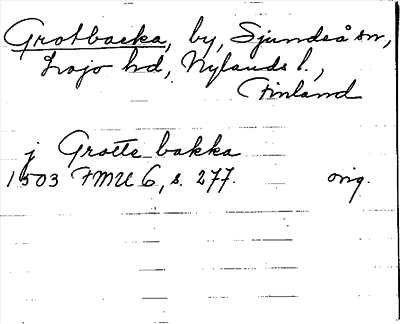 Grotbacka, by, Sjundeå sn,
Lojo hd, Nylands l.,
Finland
j Grotte bakka
1503 FMU 6, s. 277. orig.